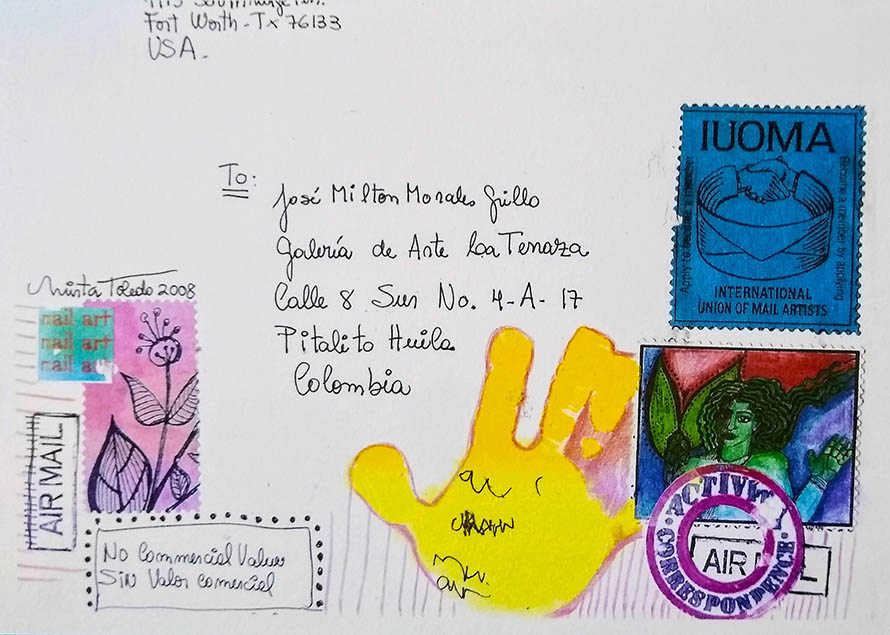 Fort Worth - Tx 76133
USA.
To:
José Milton Morales Grillo
Galería de Arte La Tenaza
Calle 8 Sur No. 4-A-17
Pitalito Huila
Colombia
IUOMA
Apply to become a member
Become a member by applying
INTERNATIONAL
UNION OF MAIL ARTISTS
Toledo 2008
mail art
mail art
mail art
AIR MAIL
No Commercial Value
Sin Valor Comercial
CORRESPONDENCE
AIR